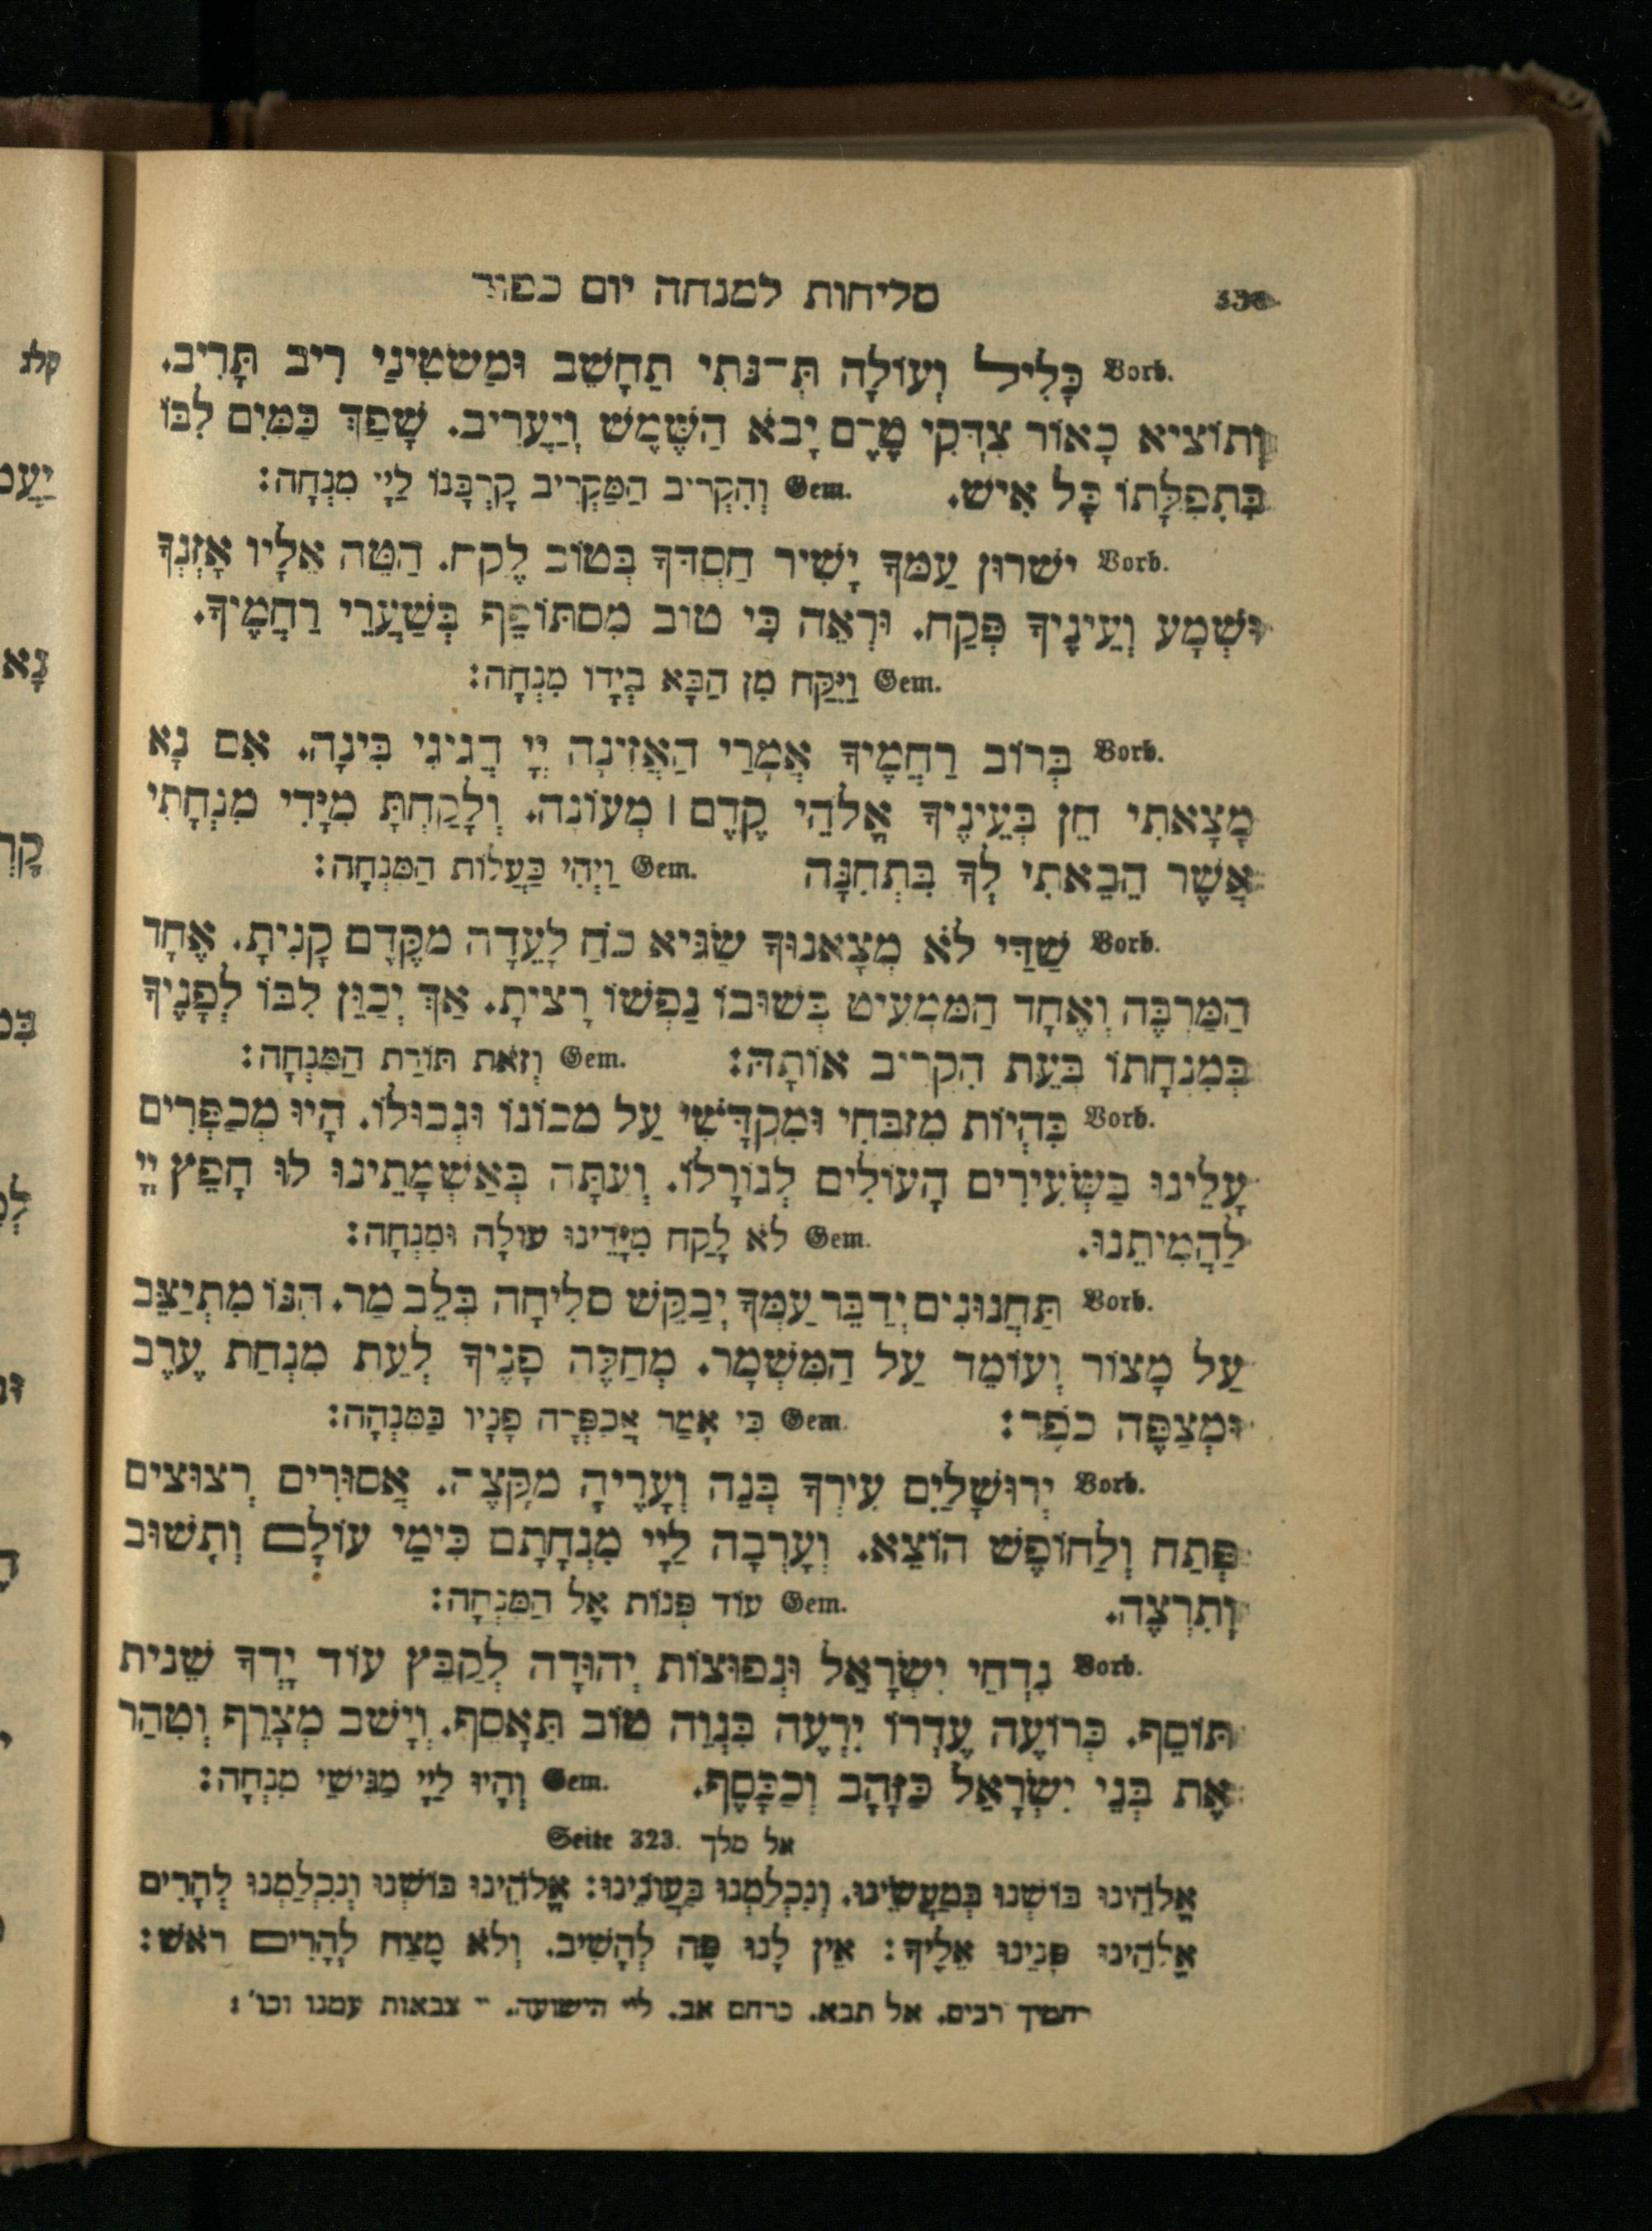 סליחות למנחה יום כפור
Vorb. כָּלִיל וְעוֹלָה תְּ־נַּתִי תַחֲשֵׁב וּמַשְׂטִינַי רִיב תָּרִיב.
וְתוֹצִיא כָאוֹר צִדְקִי טֶרֶם יָבֹא הַשֶּׁמֶשׁ וְיַעֲרִיב. שָׁפַךְ כַּמַּיִם לִבּוֹ
בִּתְפִלָּתוֹ כָּל אִישׁ. Gem. וְהִקְרִיב הַמַּקְרִיב קָרְבָּנוֹ לַיְיָ מִנְחָה:
Vorb. יְשֻׁרוּן עַמְּךָ יָשִׁיר חַסְדְּךָ בְּטוֹב לֶקַח. הַטֵּה אֵלָיו אָזְנְךָ
וּשְׁמָע וְעֵינֶיךָ פְּקַח. וּרְאֵה כִּי טוֹב מִסְתּוֹפֵף בְּשַׁעֲרֵי רַחֲמֶיךָ.
Gem. וַיִּקַּח מִן הַבָּא בְיָדוֹ מִנְחָה:
Vorb. בְּרוֹב רַחֲמֶיךָ אֲמָרַי הַאֲזִינָה יְיָ הֲגִיגִי בִּינָה. אִם נָא
מָצָאתִי חֵן בְּעֵינֶיךָ אֱלֹהֵי קֶדֶם מְעוֹנָה. וְלָקַחְתָּ מִיָּדִי מִנְחָתִי
אֲשֶׁר הֵבֵאתִי לְךָ בִּתְחִנָּה Gem. וַיְהִי כַּעֲלוֹת הַמִּנְחָה:
Vorb. שַׁדַּי לֹא מְצָאנוּךָ שַׂגִּיא כֹחַ לָעֵדָה מִקֶּדֶם קָנִיתָ. אֶחָד
הַמַּרְבֶּה וְאֶחָד הַמַּמְעִיט בְּשׁוּבוֹ נַפְשׁוֹ רָצִיתָ. אַךְ יְכַוֵּן לִבּוֹ לְפָנֶיךָ
בְּמִנְחָתוֹ בְּעֵת הִקְרִיב אוֹתָהּ: Gem. וְזֹאת תּוֹרַת הַמִּנְחָה:
Vorb. בִּהְיוֹת מִזְבְּחִי וּמִקְדָּשִׁי עַל מְכוֹנוֹ וּגְבוּלוֹ. הָיוּ מְכַפְּרִים
עָלֵינוּ בַּשְּׂעִירִים הָעוֹלִים לְגוֹרָלוֹ. וְעַתָּה בְּאַשְׁמָתֵינוּ לוּ חָפֵץ יְיָ
לַהֲמִיתֵנוּ. Gem. לֹא לָקַח מִיָּדֵינוּ עוֹלָה וּמִנְחָה:
Vorb. תַּחֲנוּנִים יְדַבֵּר עַמְּךָ יְבַקֵּשׁ סְלִיחָה בְּלֵב מַר. הִנּוֹ מִתְיַצֵּב
עַל מָצוֹר וְעוֹמֵד עַל הַמִּשְׁמָר. מְחַלֶּה פָנֶיךָ לְעֵת מִנְחַת עֶרֶב
וּמְצַפֶּה כֹפֶר: Gem. כִּי אָמַר אֲכַפְּרָה פָנָיו בַּמִּנְחָה:
Vorb. יְרוּשָׁלַיִם עִירְךָ בְּנֵה וְעָרֶיהָ מִקָּצֶה. אֲסוּרִים רְצוּצִים
פְּתַח וְלַחוֹפֶשׁ הוֹצֵא. וְעָרְבָה לַיְיָ מִנְחָתָם כִּימֵי עוֹלָם וְתָשׁוּב
וְתִרְצֶה. Gem. עוֹד פְּנוֹת אֶל הַמִּנְחָה:
Vorb. נִדְחֵי יִשְׂרָאֵל וּנְפוּצוֹת יְהוּדָה לְקַבֵּץ עוֹד יָדְךָ שֵׁנִית
תּוֹסֵף. כְּרוֹעֶה עֶדְרוֹ יִרְעֶה בִּנְוֵה טוֹב תֵּאָסֵף. וְיָשַׁב מְצָרֵף וְטִהַר
אֶת בְּנֵי יִשְׂרָאֵל כַּזָּהָב וְכַכָּסֶף. Gem. וְהָיוּ לַיְיָ מַגִּישֵׁי מִנְחָה:
אל מלך Seite 323.
אֱלֹהֵינוּ בּוֹשְׁנוּ בְּמַעֲשֵׂינוּ. וְנִכְלַמְנוּ בַּעֲוֹנֵינוּ: אֱלֹהֵינוּ בּוֹשְׁנוּ וְנִכְלַמְנוּ לְהָרִים
אֱלֹהֵינוּ פָּנֵינוּ אֵלֶיךָ: אֵין לָנוּ פֶּה לְהָשִׁיב. וְלֹא מֵצַח לְהָרִים רֹאשׁ:
רחמיך רבים. אל תבא. כרחם אב. ליי הישועה. יי צבאות עמנו וכו׳:
קלג